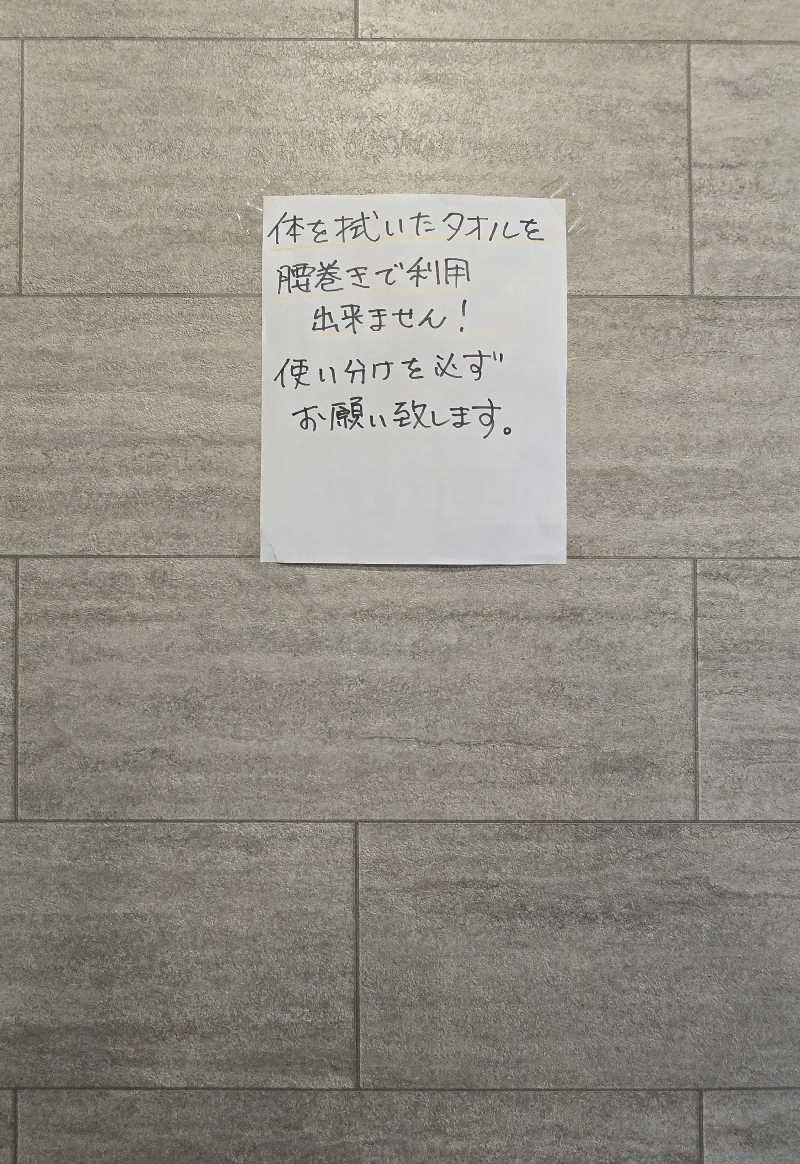 体を拭いたタオルを
腰巻きで利用
出来ません!
使い分けを必ず
お願い致します。